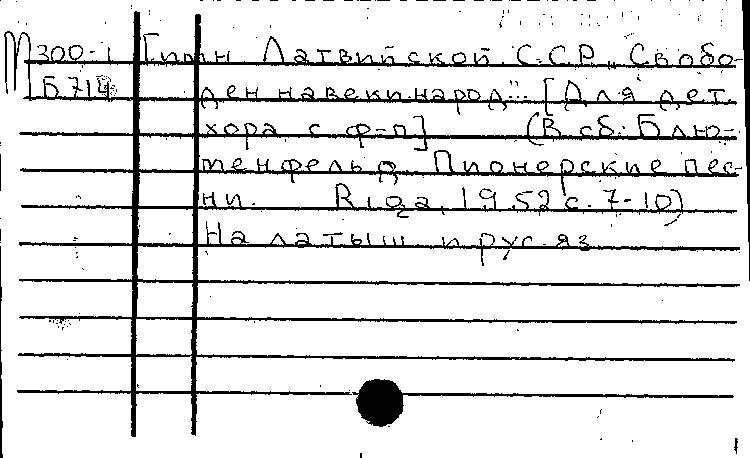 М 300-1 Гимн Латвийской ССР „Свобо-
Б714 ден навеки народ". [Для дет.
хора с ф-п] (В сб.: Блю-
менфельд. Пионерские пес-
ни. Riga, 1952 с. 7-10)
На латыш и рус яз